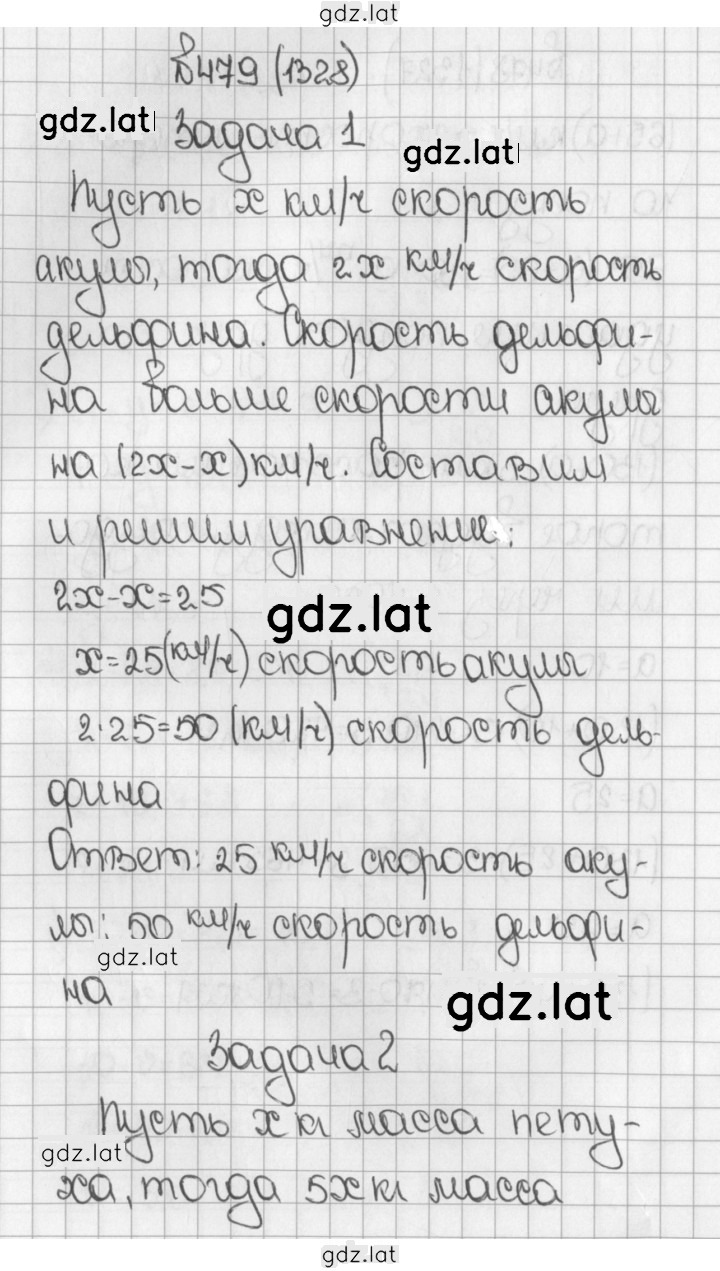 gdz.lat
№479 (1328)
gdz.lat
Задача 1
gdz.lat
Пусть x км/ч скорость
акулы, тогда 2x км/ч скорость
дельфина. Скорость дельфи-
на больше скорости акулы
на (2x-x) км/ч. Составим
и решим уравнение:
2x-x=25
gdz.lat
x=25(км/ч) скорость акулы
2·25=50 (км/ч) скорость дель-
фина
Ответ: 25 км/ч скорость аку-
лы; 50 км/ч скорость дельфи-
gdz.lat
на
gdz.lat
Задача 2
Пусть x кг масса пету-
gdz.lat
ха, тогда 5x кг масса
gdz.lat